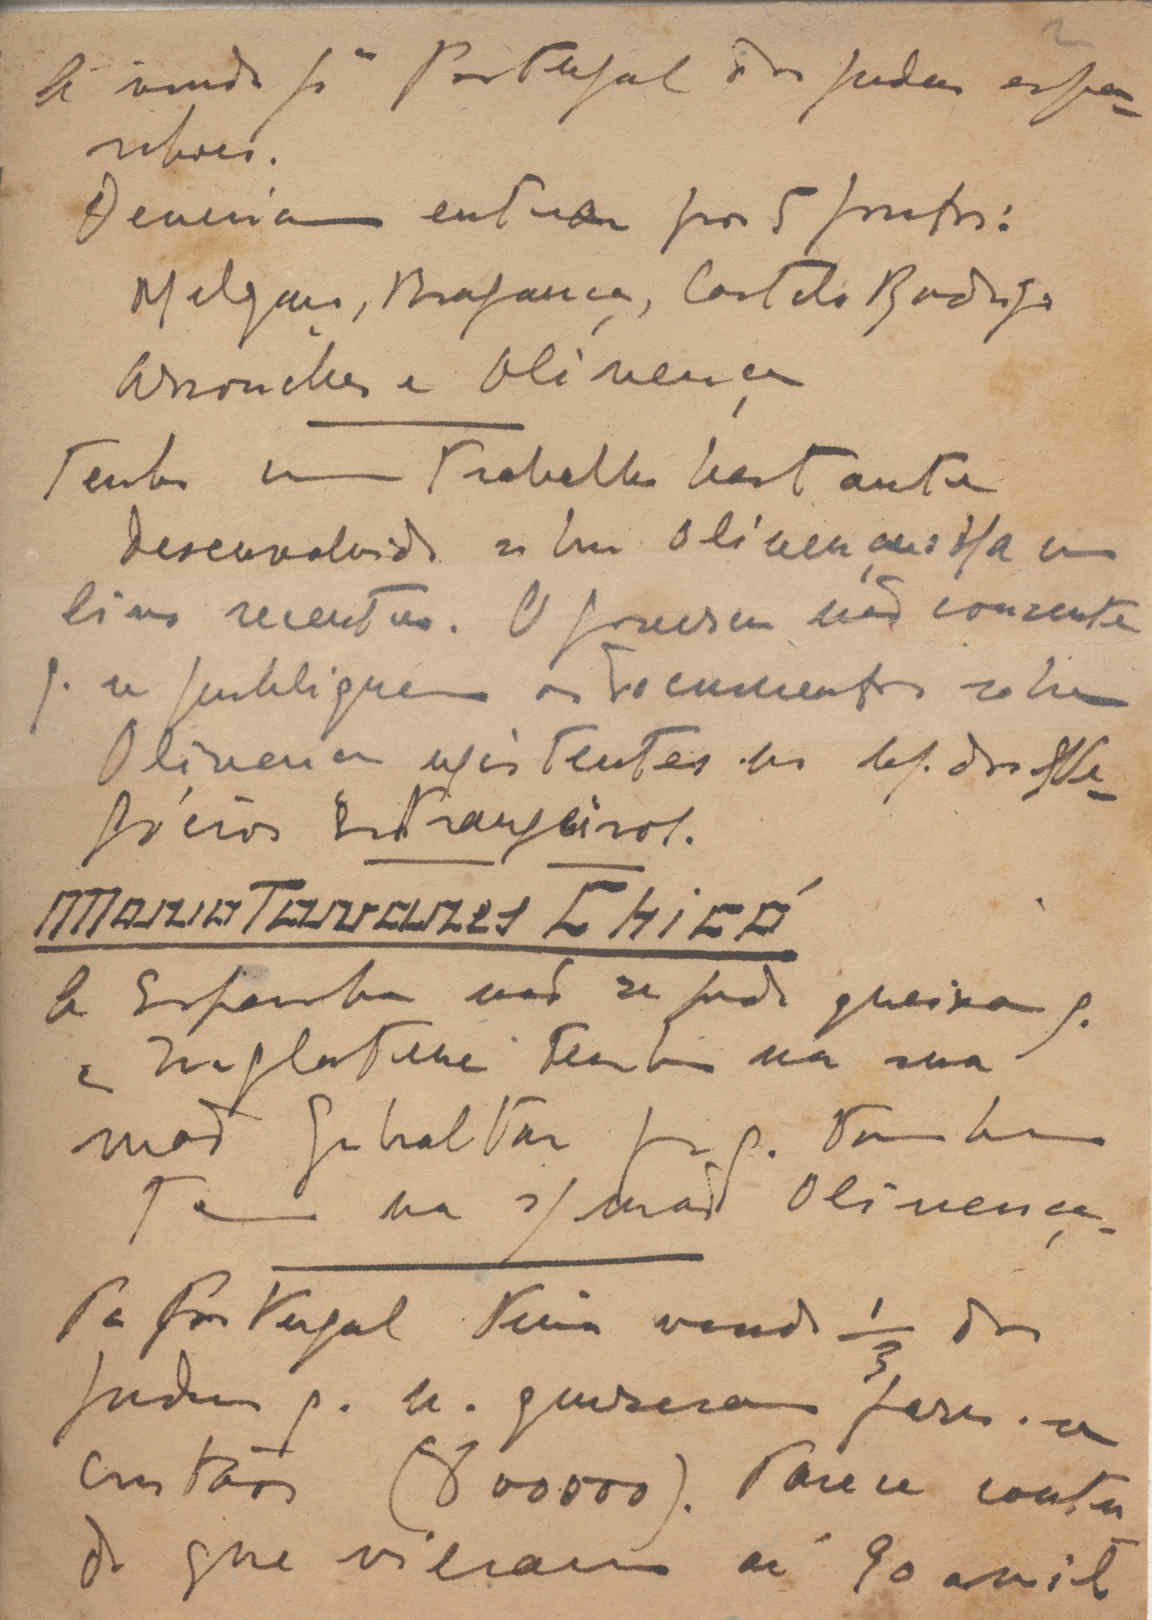 A vinda pª Portugal dos judeus espa-
nhois.
Deveriam entrar por 5 pontos:
Melgaço, Bragança, Castelo Rodrigo
Arronches e Olivença
Tenho um trabalho bastante
desenvolvido sobre Olivença
O governo não consente
q. se publiquem os documentos sobre
Olivença existentes no dos Ne-
gócios Estrangeiros.
Mario Tavares Chicó
A Espanha não se pode queixar q.
a Inglaterra tenha na sua
mão Gibraltar pr q. tambem
tem na s/ mão Olivença.
Pa Portugal teria vindo 1/3 dos
judeus q. n. quiseram fazer-se
cristãos (800000). Parece contu
do que vieram só 90 a mil